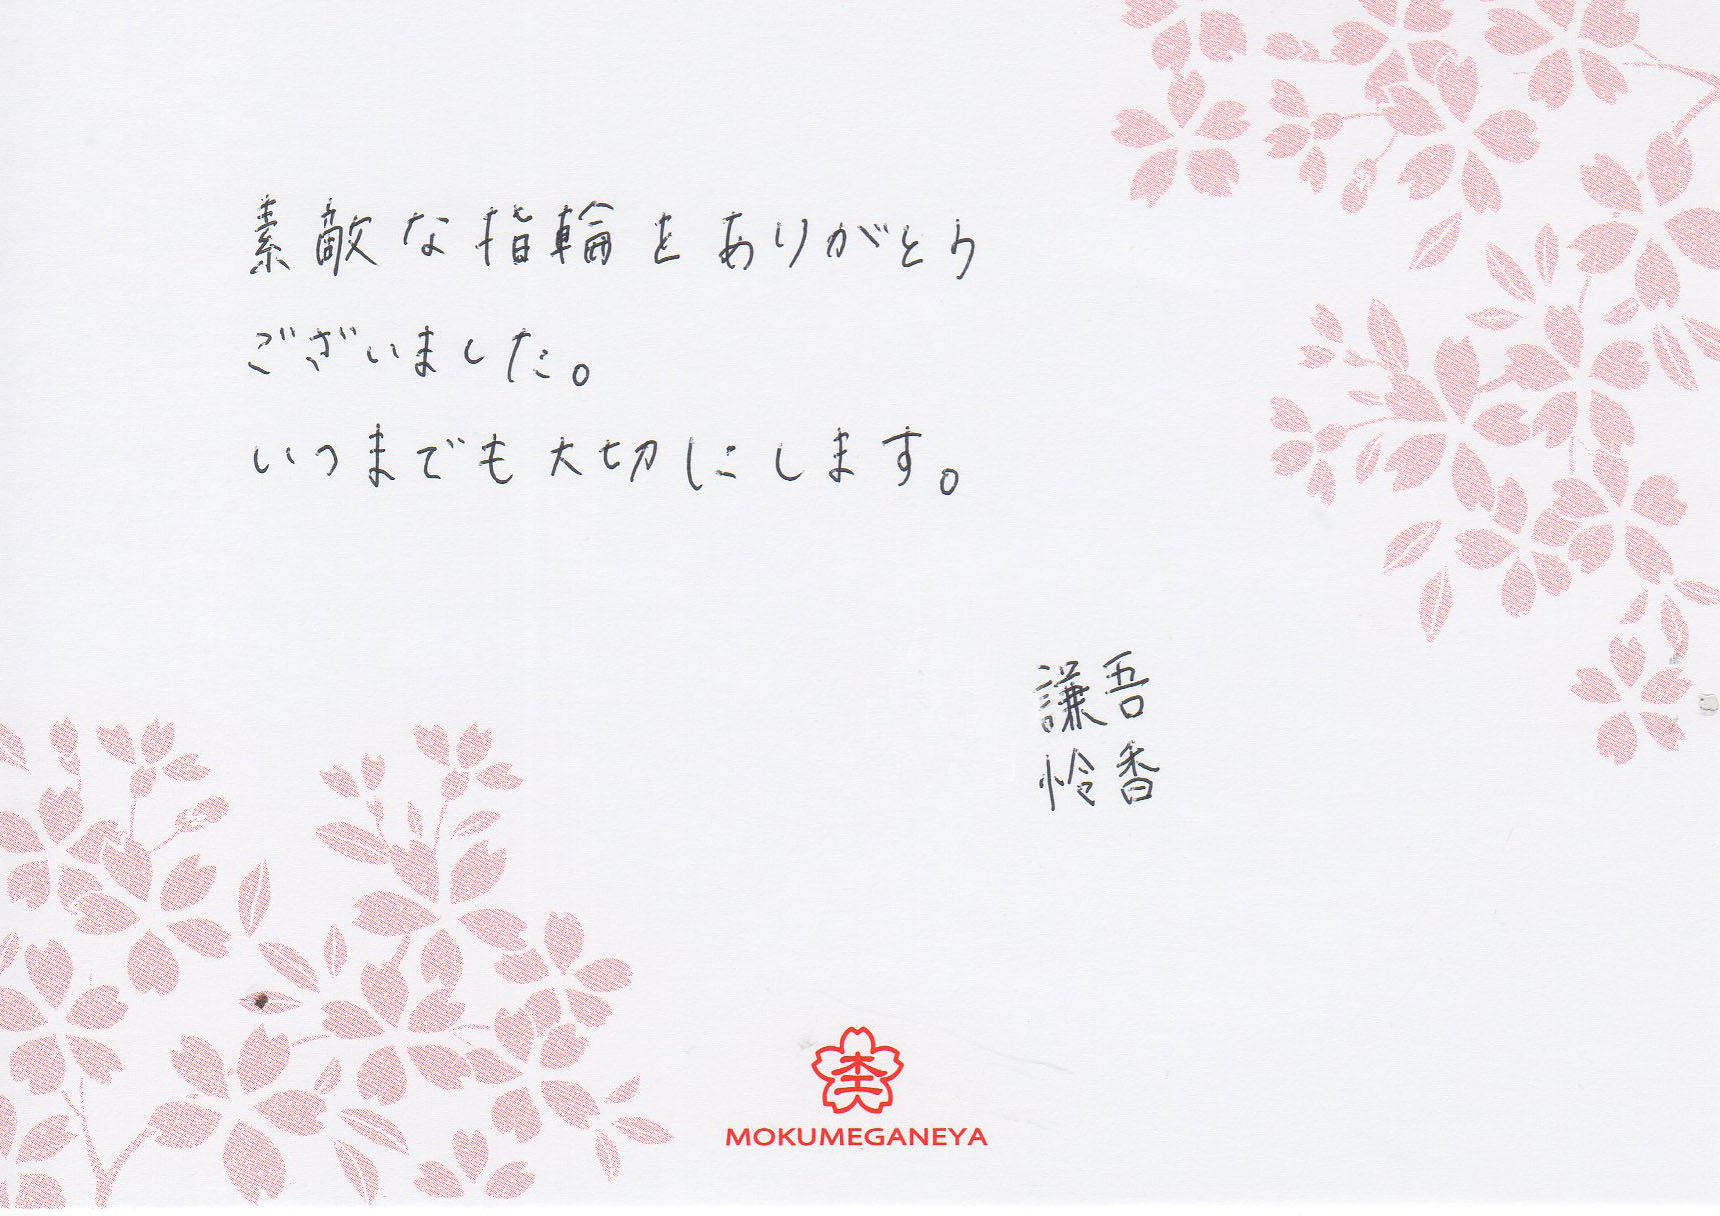 素敵な指輪をありがとう
ございました。
いつまでも大切にします。
謙吾
怜香
MOKUMEGANEYA